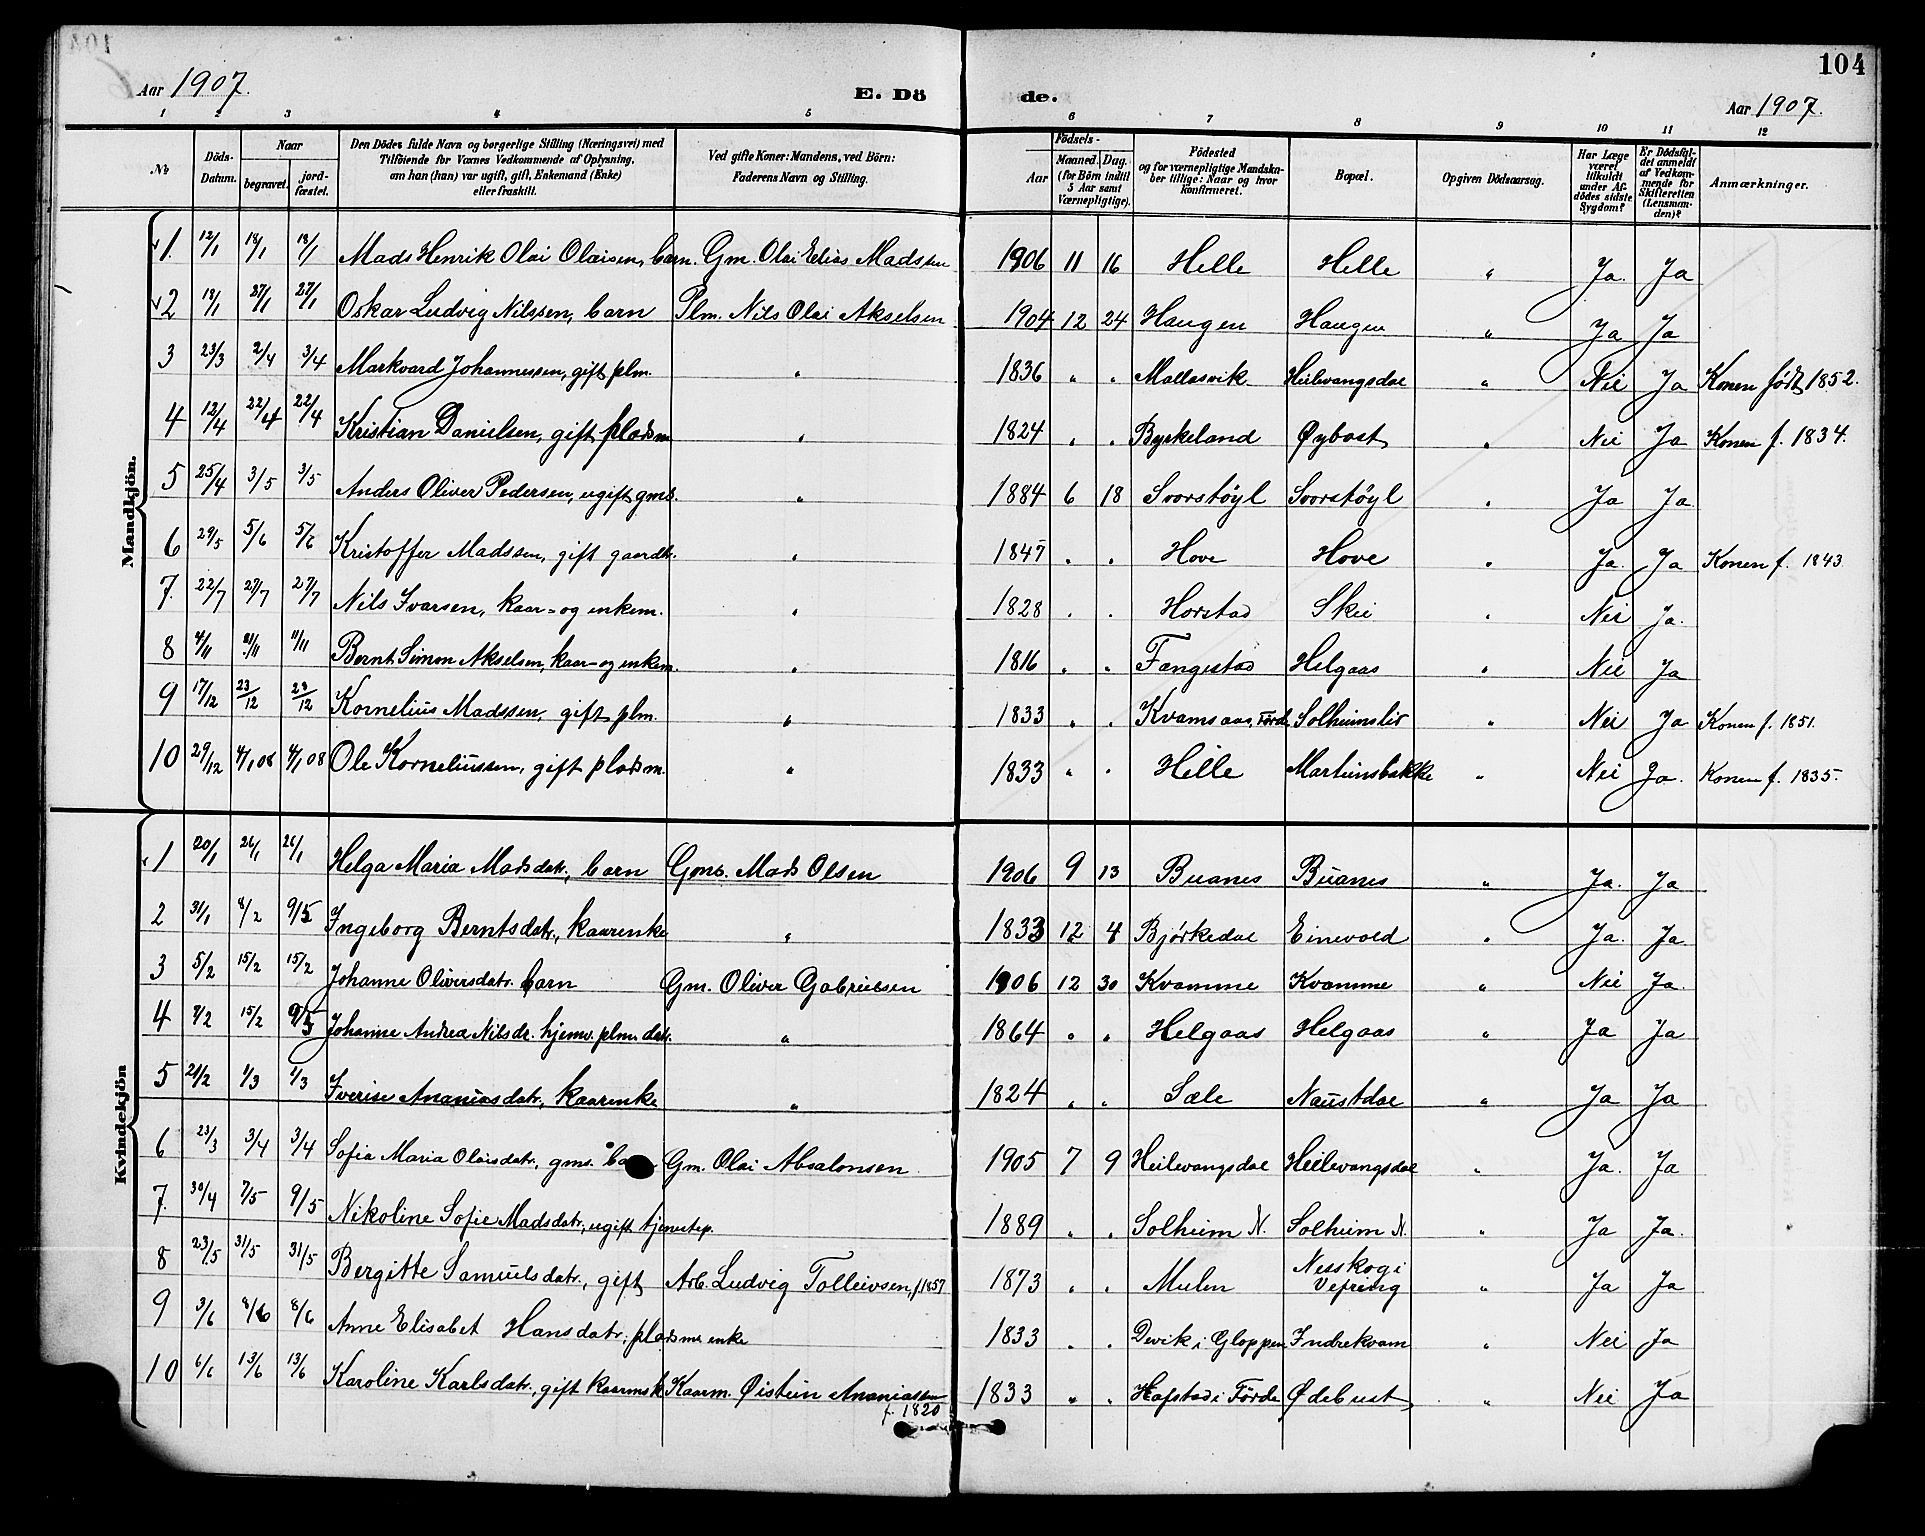 104
Aar 1907.
E. Dö de.
Aar 1907.
1 2 3 4 5 6 7 8 9 10 11 12
No Döds-Datum. Naar begravet. jord-fæstet. Den Dödes fulde Navn og borgerlige Stilling (Næringsvei) med Tilföiende for Voxnes Vedkommende af Oplysning, om han (hun) var ugift, gift, Enkemand (Enke) eller fraskilt. Ved gifte Koner: Mandens, ved Börn: Faderens Navn og Stilling. Födsels- Aar Maaned. Dag. (for Börn indtil 5 Aar samt Værnepligtige). Födested og for værnepligtige Mandskaber tillige: Naar og hvor konfirmeret. Bopæl. Opgiven Dödsaarsag. Har Læge været tilkaldt under Afdödes sidste Sygdom? Er Dödsfaldet anmeldt af Vedkommende for Skifteretten (Lensmanden)? Anmærkninger.
Mandkjön.
1. 12/1 18/1 18/1 Mads Henrik Olai Olaisen, barn. Gm. Olai Elias Madssen 1906 11 16 Helle Helle " Ja. Ja
2 18/1 27/1 27/1 Oskar Ludvig Nilssen, barn Plm. Nils Olai Akselsen 1904 12 24 Haugen Haugen " Ja Ja
3 23/3 2/4 3/4 Markvard Johannessen, gift plm. " 1836 " " Mallasvik Heilevangsdal " Nei Ja Konen født 1852.
4 12/4 22/4 22/4 Kristian Danielsen, gift pladsm " 1824 " " Byrkeland Øybost " Nei Ja Konen f. 1834.
5 25/4 3/5 3/5 Anders Oliver Pedersen, ugift gms. " 1884 6 18 Svorstøyl Svorstøyl " Ja Ja
6 29/5 5/6 5/6 Kristoffer Madssen, gift gaardb. " 1847 " " Hove Hove " Ja. Ja Konen f. 1843.
7. 22/7 27/7 27/7 Nils Ivarsen, kaar- og enkem. " 1828 " " Horstad Skei " Nei Ja.
8 4/11 11/11 Bernt Simon Akselsen, kaar- og enkem. " 1816 " " Fangestad Helgaas " Nei Ja
9 17/12 23/12 Kornelius Madssen, gift plm. " 1833 " " Kvamsaas, Førde Solheimslid " Nei Ja Konen f. 1851.
10 29/12 4/1 08 4/1 08 Ole Korneliussen, gift pladsm. " 1833 " " Helle Martinsbakke " Nei Ja. Konen f. 1835.
Kvindekjön
1 20/1 26/1 26/1 Helga Maria Madsdatr., barn Gms. Mads Olsen 1906 9 13 Buanes Buanes " Ja. Ja
2 31/1 8/2 9/5 Ingeborg Berntsdatr., kaarenke " 1833 12 4 Bjørkedal Einevold " Ja. Ja
3 5/2 15/2 15/2 Johanne Oliversdatr. barn Gm. Oliver Gabrielsen 1906 12 30 Kvamme Kvamme " Nei Ja.
4 15/2 9/5 Johanne Andrea Nilsdr. hjemv. plm. datr. " 1864 " " Helgaas Helgaas " Ja Ja
5 1/3 1/3 Iverine Ananiasdatr., kaarenke " 1824 " " Sæle Naustdal " Ja Ja
6 23/3 3/4 3/4 Sofia Maria Olaisdatr., gms. Gm. Olai Absalonsen 1905 7 9 Heilevangsdal Heilevangsdal " Ja. Ja
7. 30/4 7/5 9/5 Nikoline Sofie Madsdatr., ugift tjenestep. 1889 " " Solheim N. Solheim N. " Ja Ja.
8 23/5 31/5 31/5 Bergitte Samuelsdatr., gift Arb. Ludvig Tolleivsen, f. 1857 1873 " " Mulen Nesskog i Vefring " Ja Ja
9 3/6 8/6 8/6 Anne Elisabet Hansdatr., pladsm. enke 1833 " " Devik i Gloppen Indrekvam " Nei Ja
10 6/6 13/6 13/6 Karoline Karlsdatr., gift kaarmsk. Kaarm. Øistein Ananiassen f. 1820 1833 " " Hafstad i Førde Ødebust " Nei Ja